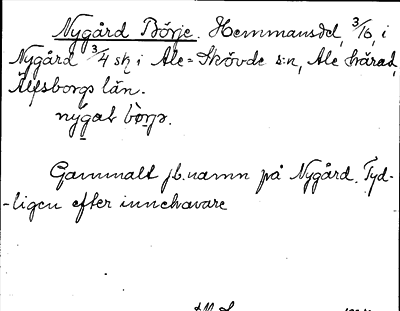 Nygård Börje. Hemmansdel, 3/16, i
Nygård 3/4 sk i Ale-Skövde s:n, Ale härad,
Älfsborgs län.
nýgaḷ bö̀rjə.
Gammalt jb.namn på Nygård. Tyd-
-ligen efter innehavare